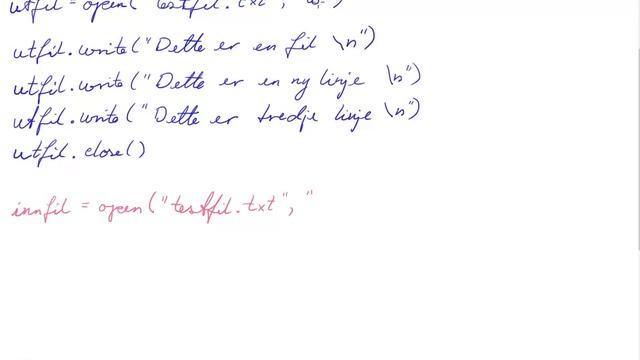 utfil = open("testfil.txt", "w
utfil.write("Dette er en fil \n")
utfil.write("Dette er en ny linje \n")
utfil.write("Dette er tredje linje \n")
utfil.close()
innfil = open("testfil.txt", "